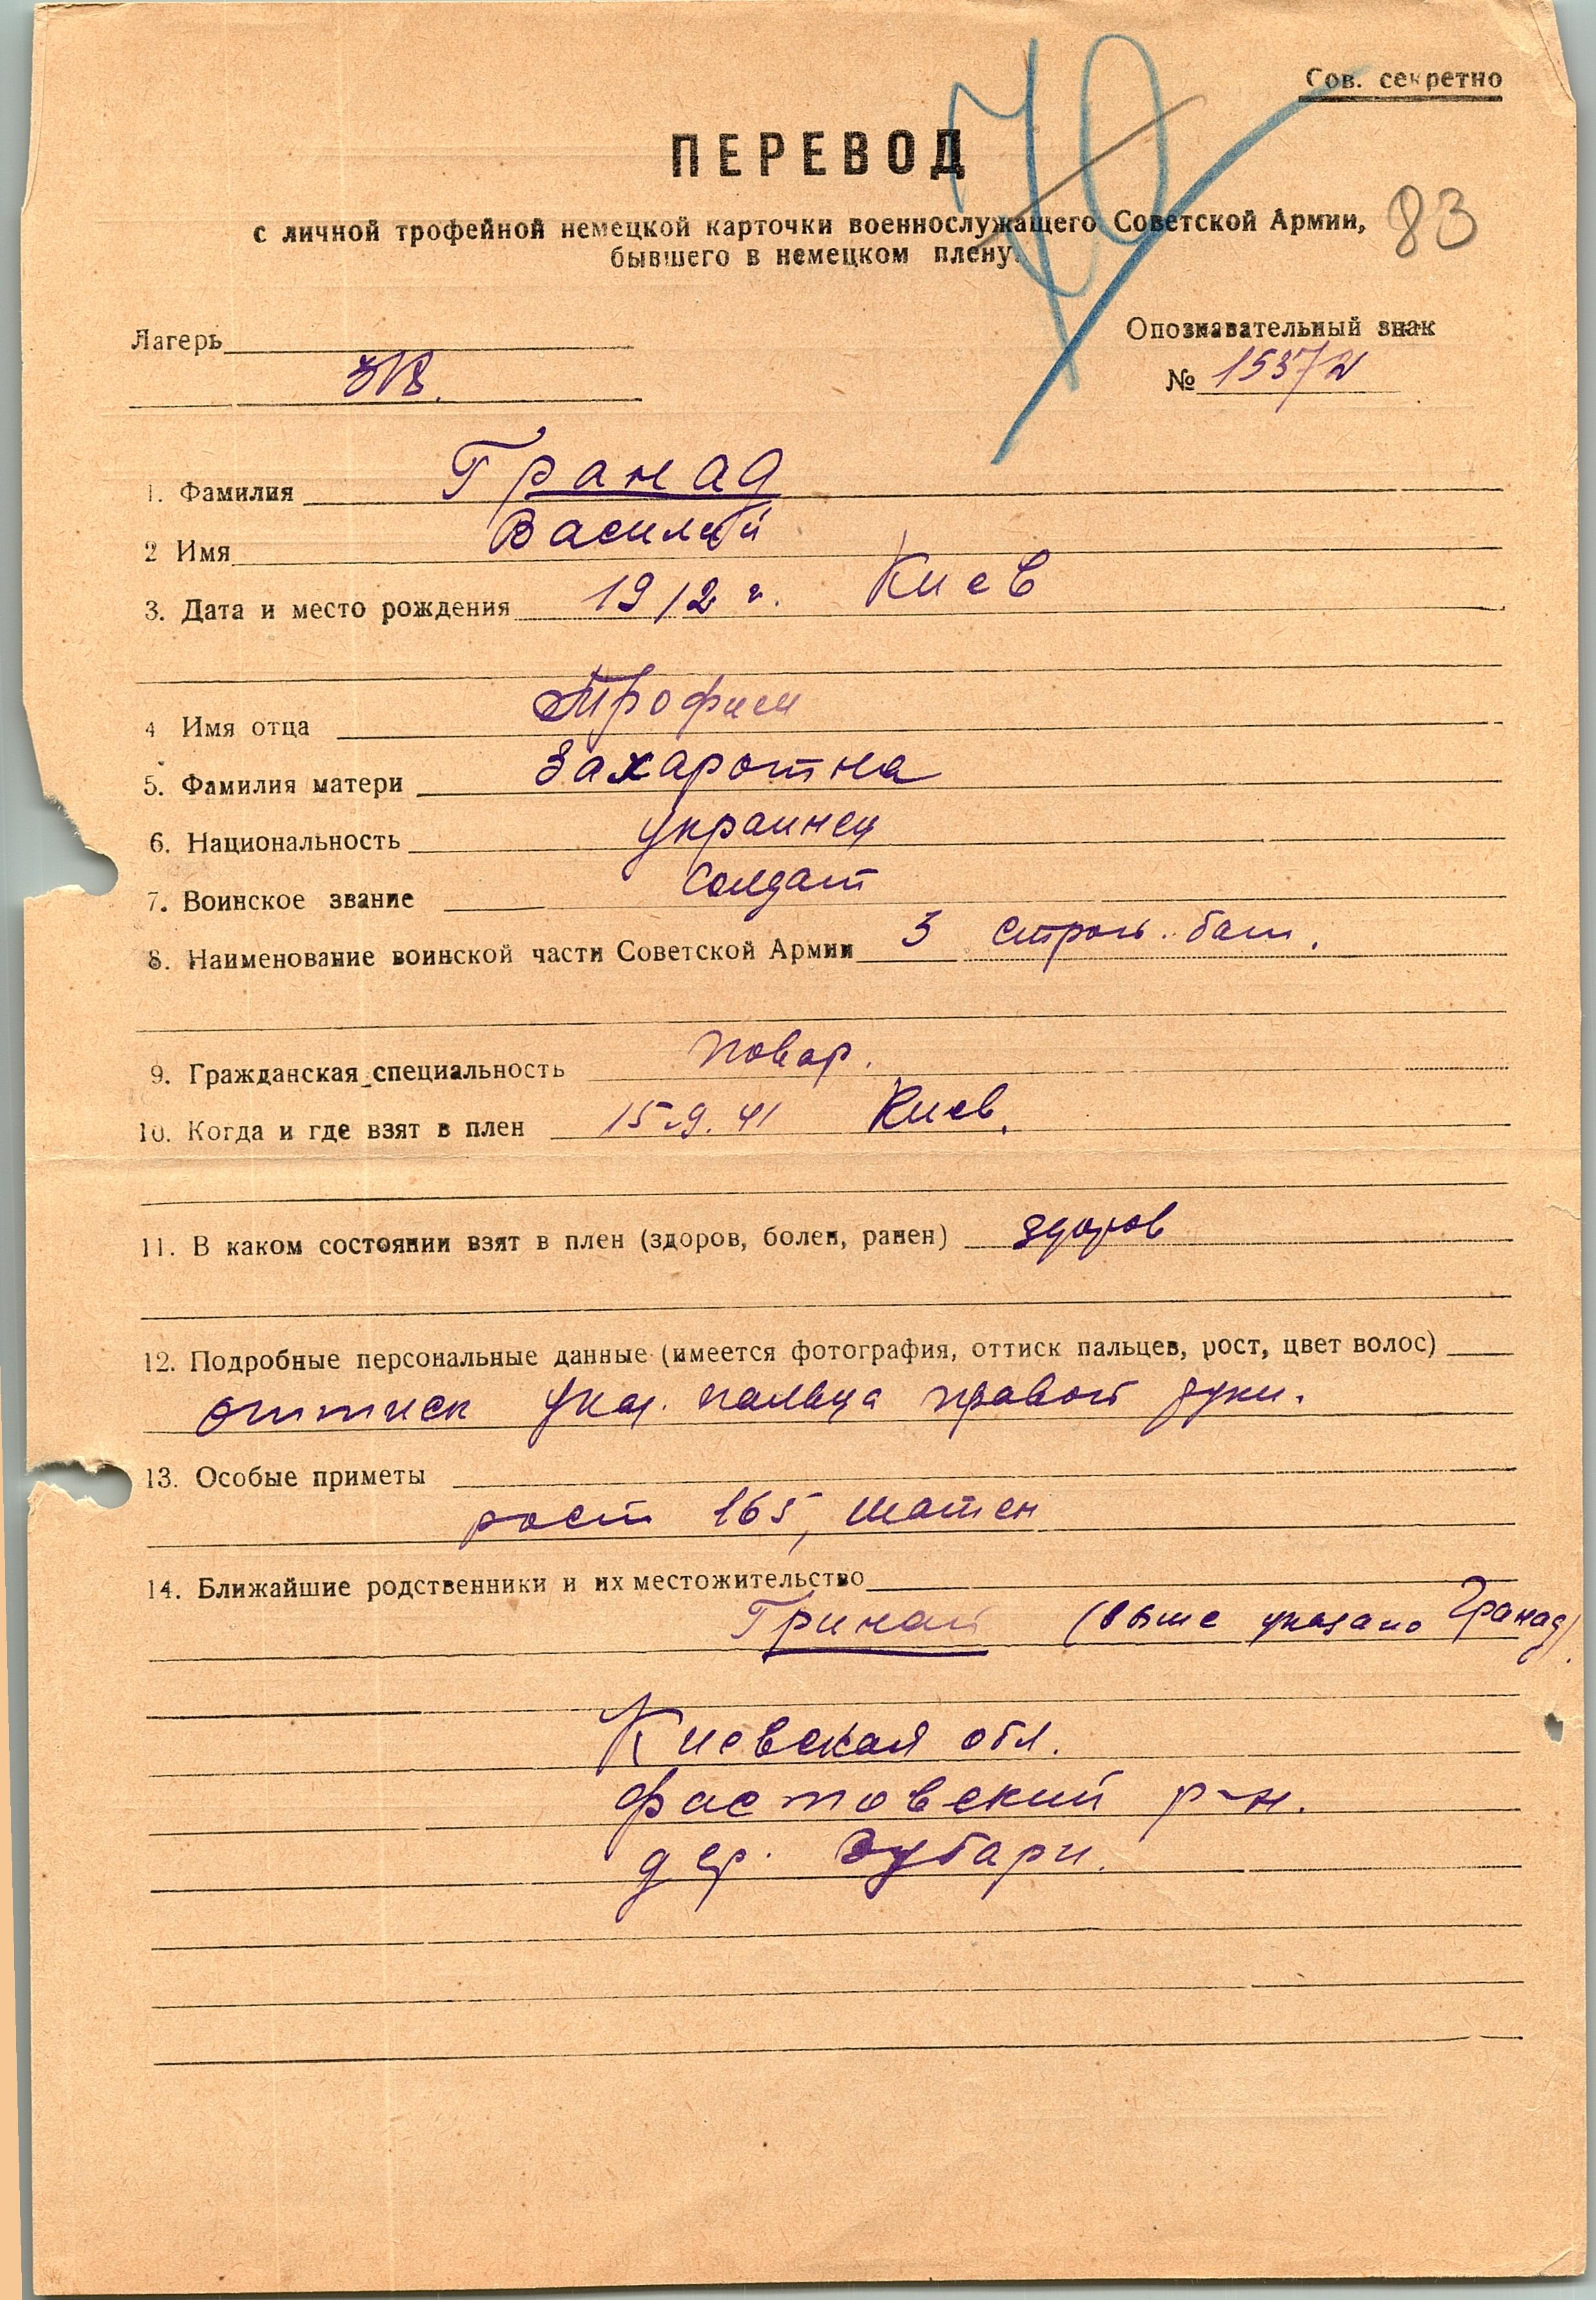 Сов. секретно
ПЕРЕВОД
с личной трофейной немецкой карточки военнослужащего Советской Армии,
бывшего в немецком плену.
70
83
Лагерь
Опознавательный знак
№ 15372
1. Фамилия Гранад
2 Имя Василий
3. Дата и место рождения 1912 г. Киев
4 Имя отца Трофим
5. Фамилия матери Захаротна
6. Национальность украинец
7. Воинское звание Солдат
8. Наименование воинской части Советской Армии 3 строит. бат.
9. Гражданская специальность повар.
10. Когда и где взят в плен 15.9.41 Киев.
11. В каком состоянии взят в плен (здоров, болен, ранен) здоров
12. Подробные персональные данные (имеется фотография, оттиск пальцев, рост, цвет волос)
оттиск указ. пальца правой руки.
13. Особые приметы
рост 165, шатен
14. Ближайшие родственники и их местожительство
Гринат (выше указано Гранад).
Киевская обл.
Фастовский р-н.
дер. Зубари.